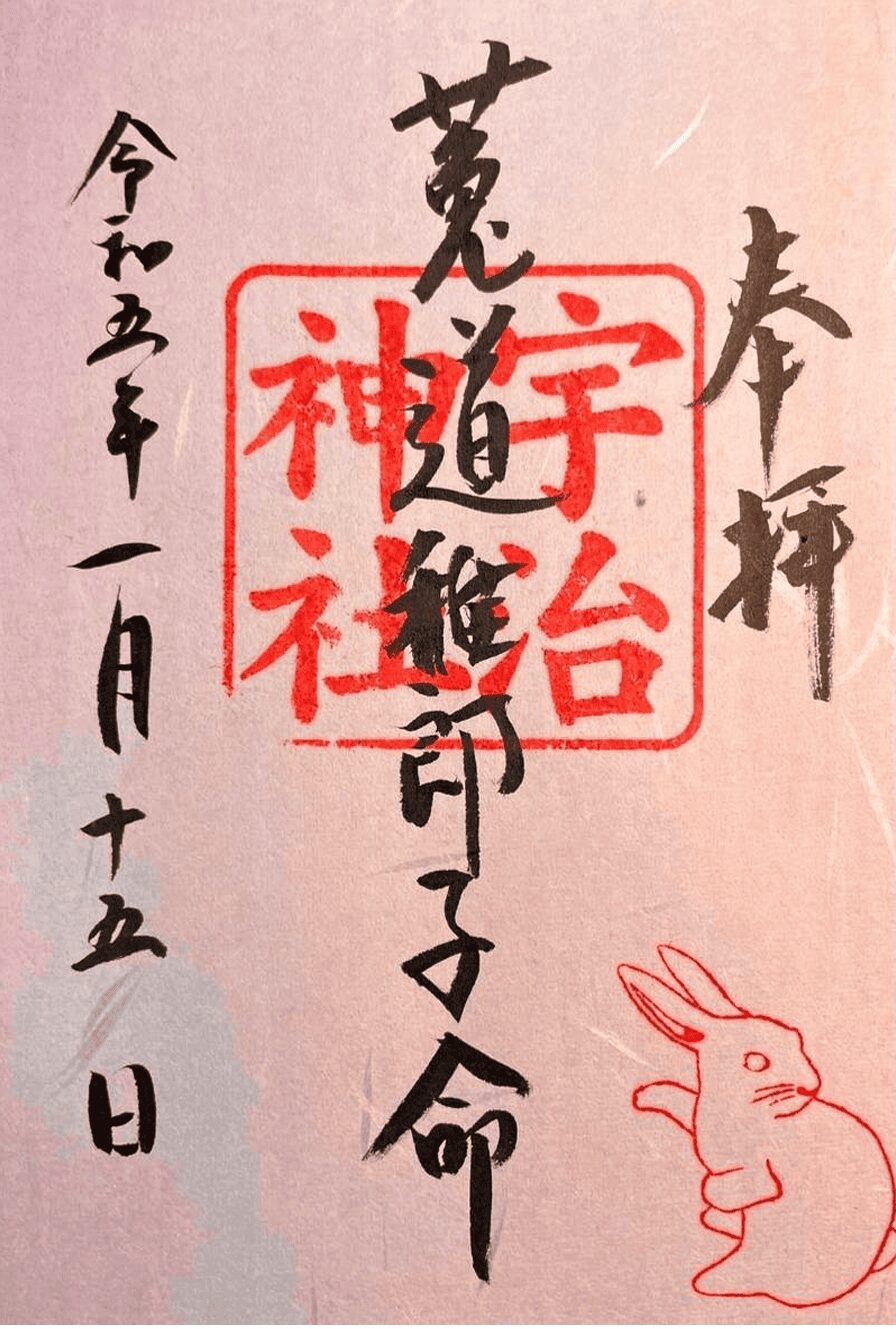 奉拝
宇治
神社
菟道稚郎子命
令和五年一月十五日